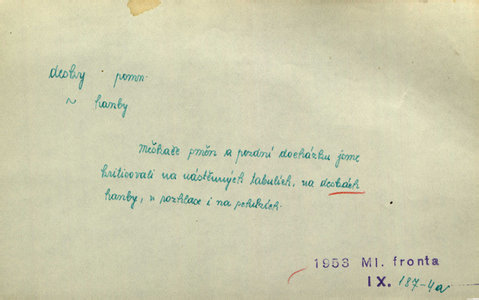 desky pomn.
~ hanby
Meškače směn a pozdní docházku jsme
kritisovali na nástěnných tabulích, na deskách
hanby, v rozhlase i na schůzích.
1953 Ml. fronta
IX. 187-4a